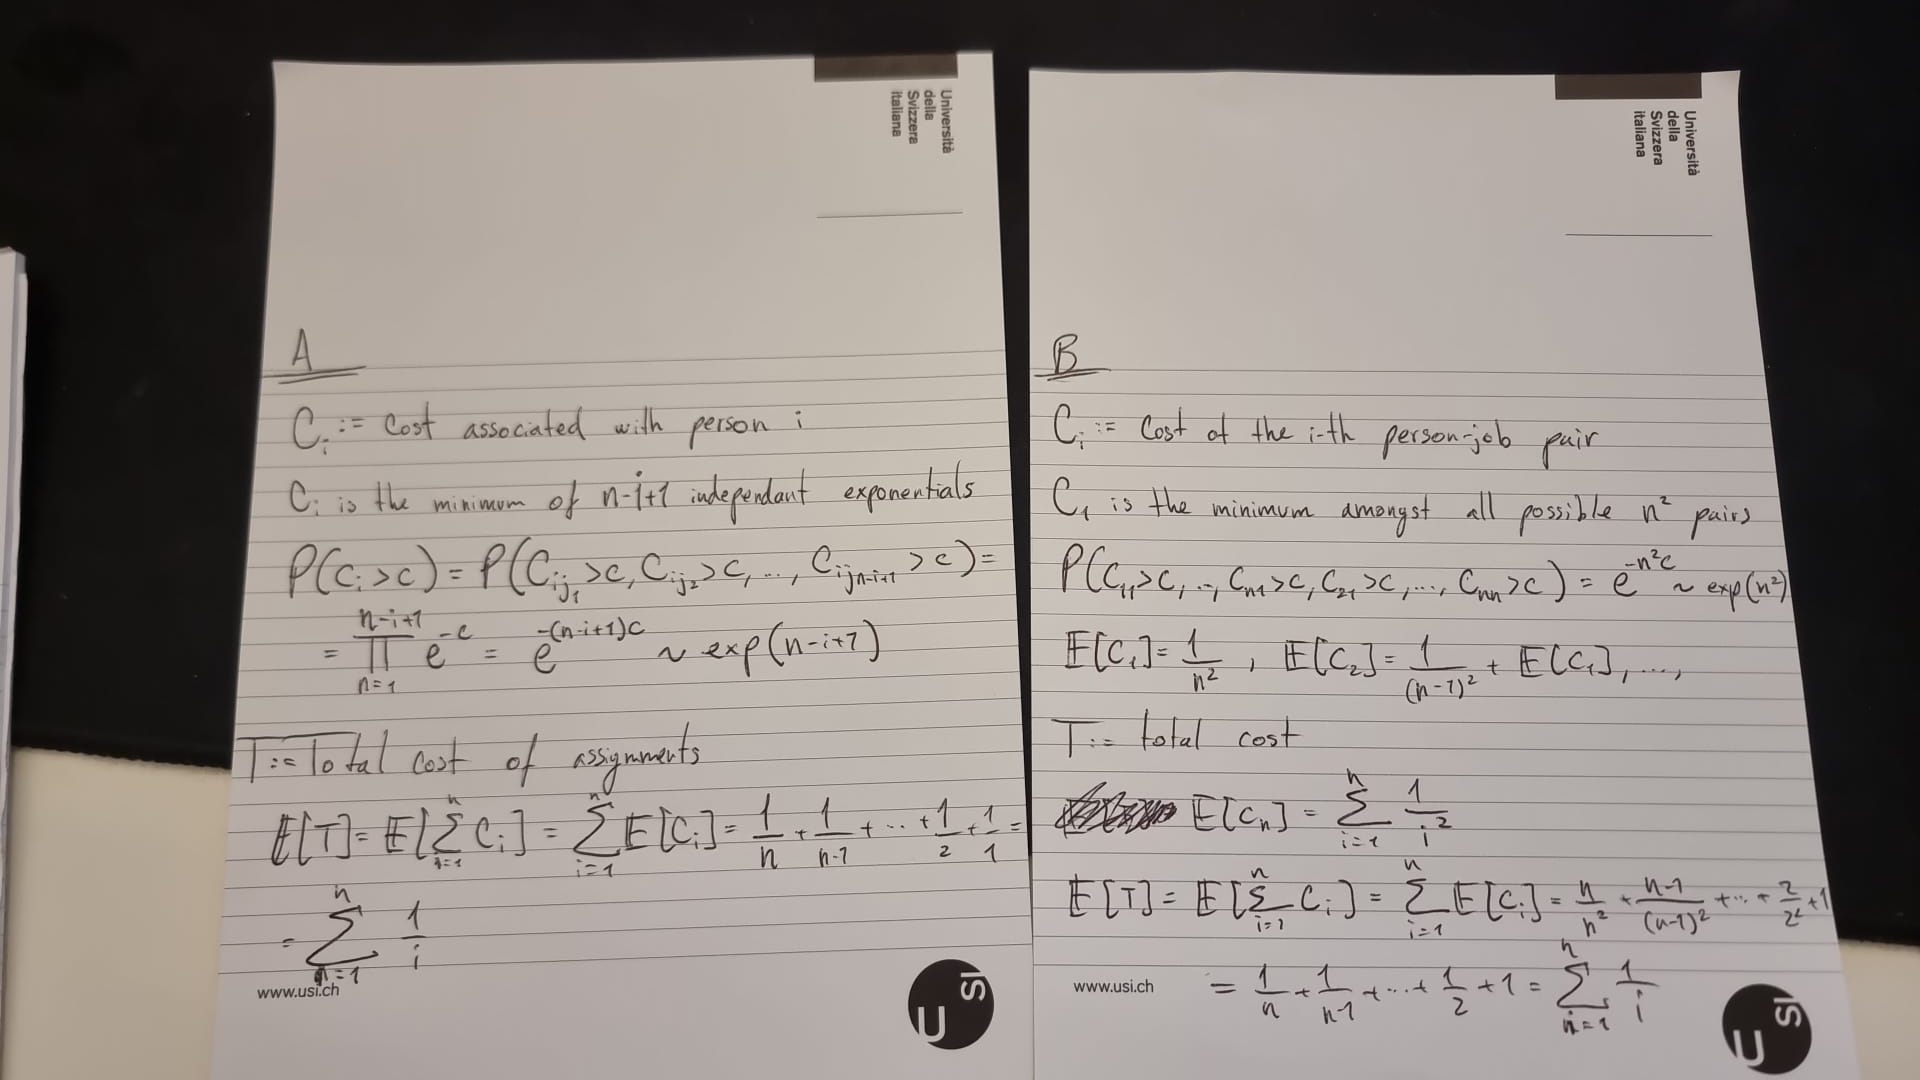 Università
della
Svizzera
italiana
A
C_i := Cost associated with person i
C_i is the minimum of n-i+1 independant exponentials
P(C_i > c) = P(C_{ij_1} > c, C_{ij_2} > c, ..., C_{ij_{n-i+1}} > c) =
= ∏_{n=1}^{n-i+1} e^{-c} = e^{-(n-i+1)c} ~ exp(n-i+1)
T := Total cost of assignments
E[T] = E[∑_{i=1}^{n} C_i] = ∑_{i=1}^{n} E[C_i] = 1/n + 1/(n-1) + ... + 1/2 + 1/1 =
= ∑_{n=1}^{n} 1/i
www.usi.ch
USI
Università
della
Svizzera
italiana
B
C_i := Cost of the i-th person-job pair
C_1 is the minimum amongst all possible n² pairs
P(C_{11} > c, ..., C_{n1} > c, C_{21} > c, ..., C_{nn} > c) = e^{-n²c} ~ exp(n²)
E[C_1] = 1/n² , E[C_2] = 1/(n-1)² + E[C_1], ...,
T := total cost
E[C_n] = ∑_{i=1}^{n} 1/i²
E[T] = E[∑_{i=1}^{n} C_i] = ∑_{i=1}^{n} E[C_i] = n/n² + (n-1)/(n-1)² + ... + 2/2² + 1
= 1/n + 1/(n-1) + ... + 1/2 + 1 = ∑_{i=1}^{n} 1/i
www.usi.ch
USI